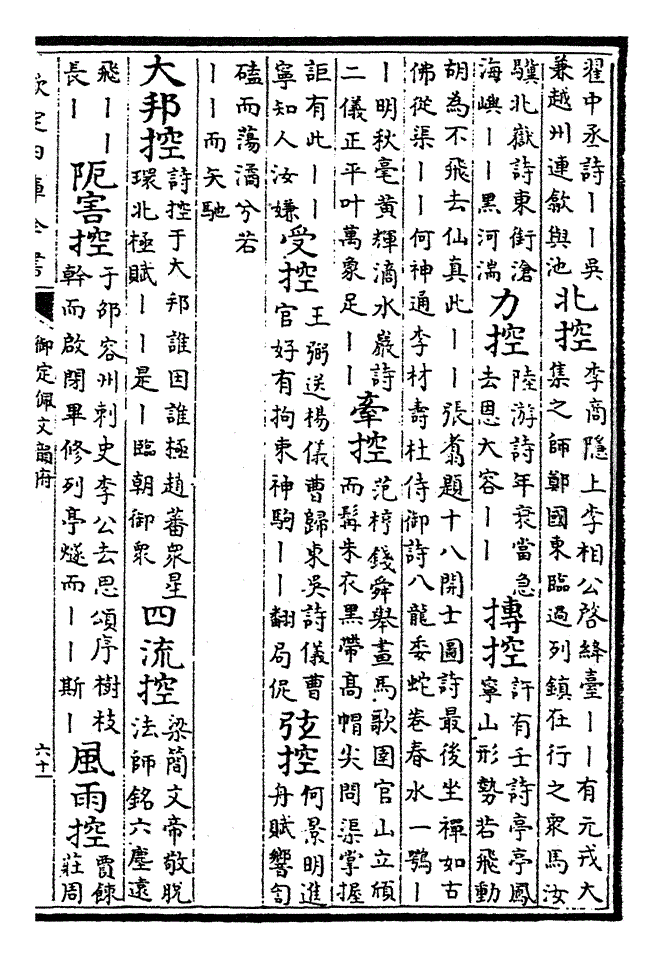 翟中丞詩——吳
兼越州連歙與池
北控
李商隱上李相公啓絳臺——有元戎大
集之師鄭國東臨過列鎮在行之衆馬汝
驥北嶽詩東銜滄
海嶼——黑河湍
力控
陸游詩年衰當急
去恩大容——
摶控
許有壬詩亭亭鳳
寧山形勢若飛動
胡為不飛去仙真此——張翥題十八開士圖詩最後坐禪如古
佛從渠——何神通李材壽杜侍御詩八龍委蛇卷春水一鶚—
—明秋毫黄輝滴水巖詩
二儀正平叶萬象足——
牽控
范梈錢舜舉畫馬歌圉官山立頎
而髯朱衣黑帶高帽尖問渠掌握
詎有此——
寧知人汝嫌
受控
王弼送楊儀曹歸東吳詩儀曹
官好有拘束神駒——翻局促
弦控
何景明進
舟賦響訇
磕而蕩潏兮若
——而矢馳
大邦控
詩控于大邦誰因誰極趙蕃衆星
環北極賦——是—臨朝御衆
四流控
梁簡文帝敬脱
法師銘六塵遠
飛——
長—
阨害控
于邵容州刺史李公去思頌序樹枝
幹而啟閉畢修列亭燧而——斯—
風雨控
賈餗
莊周
欽定四庫全書
御定佩文韻府
六十